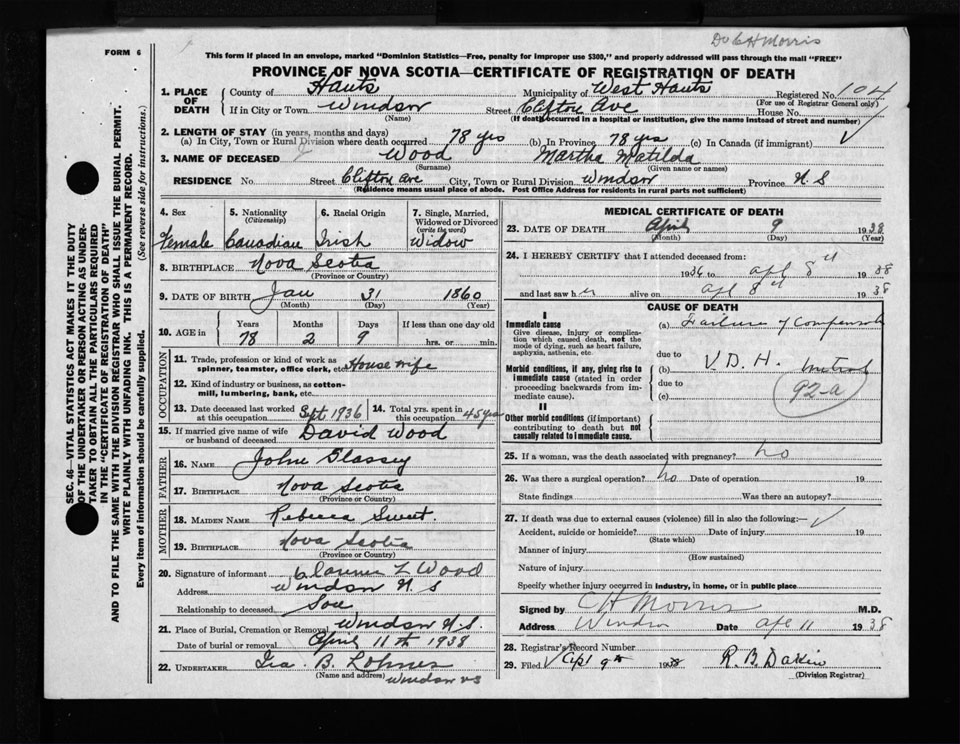 Dr C H Morris
FORM 6
This form if placed in an envelope, marked "Dominion Statistics—Free, penalty for improper use $300," and properly addressed will pass through the mail "FREE"
PROVINCE OF NOVA SCOTIA—CERTIFICATE OF REGISTRATION OF DEATH
1. PLACE OF DEATH County of Hants Municipality of West Hants Registered No. 104
(For use of Registrar General only)
If in City or Town Windsor Street Clifton Ave House No.
(Name) (If death occurred in a hospital or institution, give the name instead of street and number)
2. LENGTH OF STAY (in years, months and days)
(a) In City, Town or Rural Division where death occurred 78 yrs (b) In Province 78 yrs (c) In Canada (if immigrant)
3. NAME OF DECEASED Wood Martha Matilda
(Surname) (Given name or names)
RESIDENCE No. Street Clifton Ave City, Town or Rural Division Windsor Province N.S
(Residence means usual place of abode. Post Office Address for residents in rural parts not sufficient)
SEC. 46—VITAL STATISTICS ACT MAKES IT THE DUTY
OF THE UNDERTAKER OR PERSON ACTING AS UNDER-
TAKER TO OBTAIN ALL THE PARTICULARS REQUIRED
IN THE "CERTIFICATE OF REGISTRATION OF DEATH"
AND TO FILE THE SAME WITH THE DIVISION REGISTRAR WHO SHALL ISSUE THE BURIAL PERMIT.
WRITE PLAINLY WITH UNFADING INK. THIS IS A PERMANENT RECORD.
Every item of information should be carefully supplied. (See reverse side for instructions.)
4. Sex Female
5. Nationality (Citizenship) Canadian
6. Racial Origin Irish
7. Single, Married, Widowed or Divorced (write the word) Widow
8. BIRTHPLACE Nova Scotia
(Province or Country)
9. DATE OF BIRTH Jan 31 1860
(Month) (Day) (Year)
10. AGE in Years 78 Months 2 Days 9 If less than one day
hrs. or min.
OCCUPATION
11. Trade, profession or kind of work as spinner, teamster, office clerk, etc. Housewife
12. Kind of industry or business, as cotton-mill, lumbering, bank, etc.
13. Date deceased last worked at this occupation Sept 1936 14. Total yrs. spent in this occupation 45 years
15. If married give name of wife or husband of deceased David Wood
FATHER
16. NAME John Glassey
17. BIRTHPLACE Nova Scotia
(Province or Country)
MOTHER
18. MAIDEN NAME Rebecca Sweet.
19. BIRTHPLACE Nova Scotia
(Province or Country)
20. Signature of informant Clarence L Wood
Address Windsor N.S
Relationship to deceased Son
21. Place of Burial, Cremation or Removal Windsor N.S.
Date of burial or removal April 11th 1938
22. UNDERTAKER Ira B. Lohnes
(Name and address) Windsor NS
MEDICAL CERTIFICATE OF DEATH
23. DATE OF DEATH April 9 1938
(Month) (Day) (Year)
24. I HEREBY CERTIFY that I attended deceased from:
1936 to apl 8th 1938
and last saw her alive on apl 8th 1938
CAUSE OF DEATH
I
Immediate cause
Give disease, injury or complication which caused death, not the mode of dying, such as heart failure, asphyxia, asthenia, etc
(a) Failure of Compensat
due to
Morbid conditions, if any, giving rise to immediate cause (stated in order proceeding backwards from immediate cause).
(b) V.D.H. Mitral
due to
(c) 92-a
II
Other morbid conditions (if important) contributing to death but not causally related to immediate cause.
25. If a woman, was the death associated with pregnancy? no
26. Was there a surgical operation? no Date of operation 19
State findings Was there an autopsy?
27. If death was due to external causes (violence) fill in also the following:—
Accident, suicide or homicide? Date of injury 19
(State which)
Manner of injury
(How sustained)
Nature of injury
Specify whether injury occurred in industry, in home, or in public place
Signed by C H Morris M.D.
Address Windsor Date Apl 11 1938
28. Registrar's Record Number
29. Filed Apl 9th 1938 R. B. Dakin
(Division Registrar)